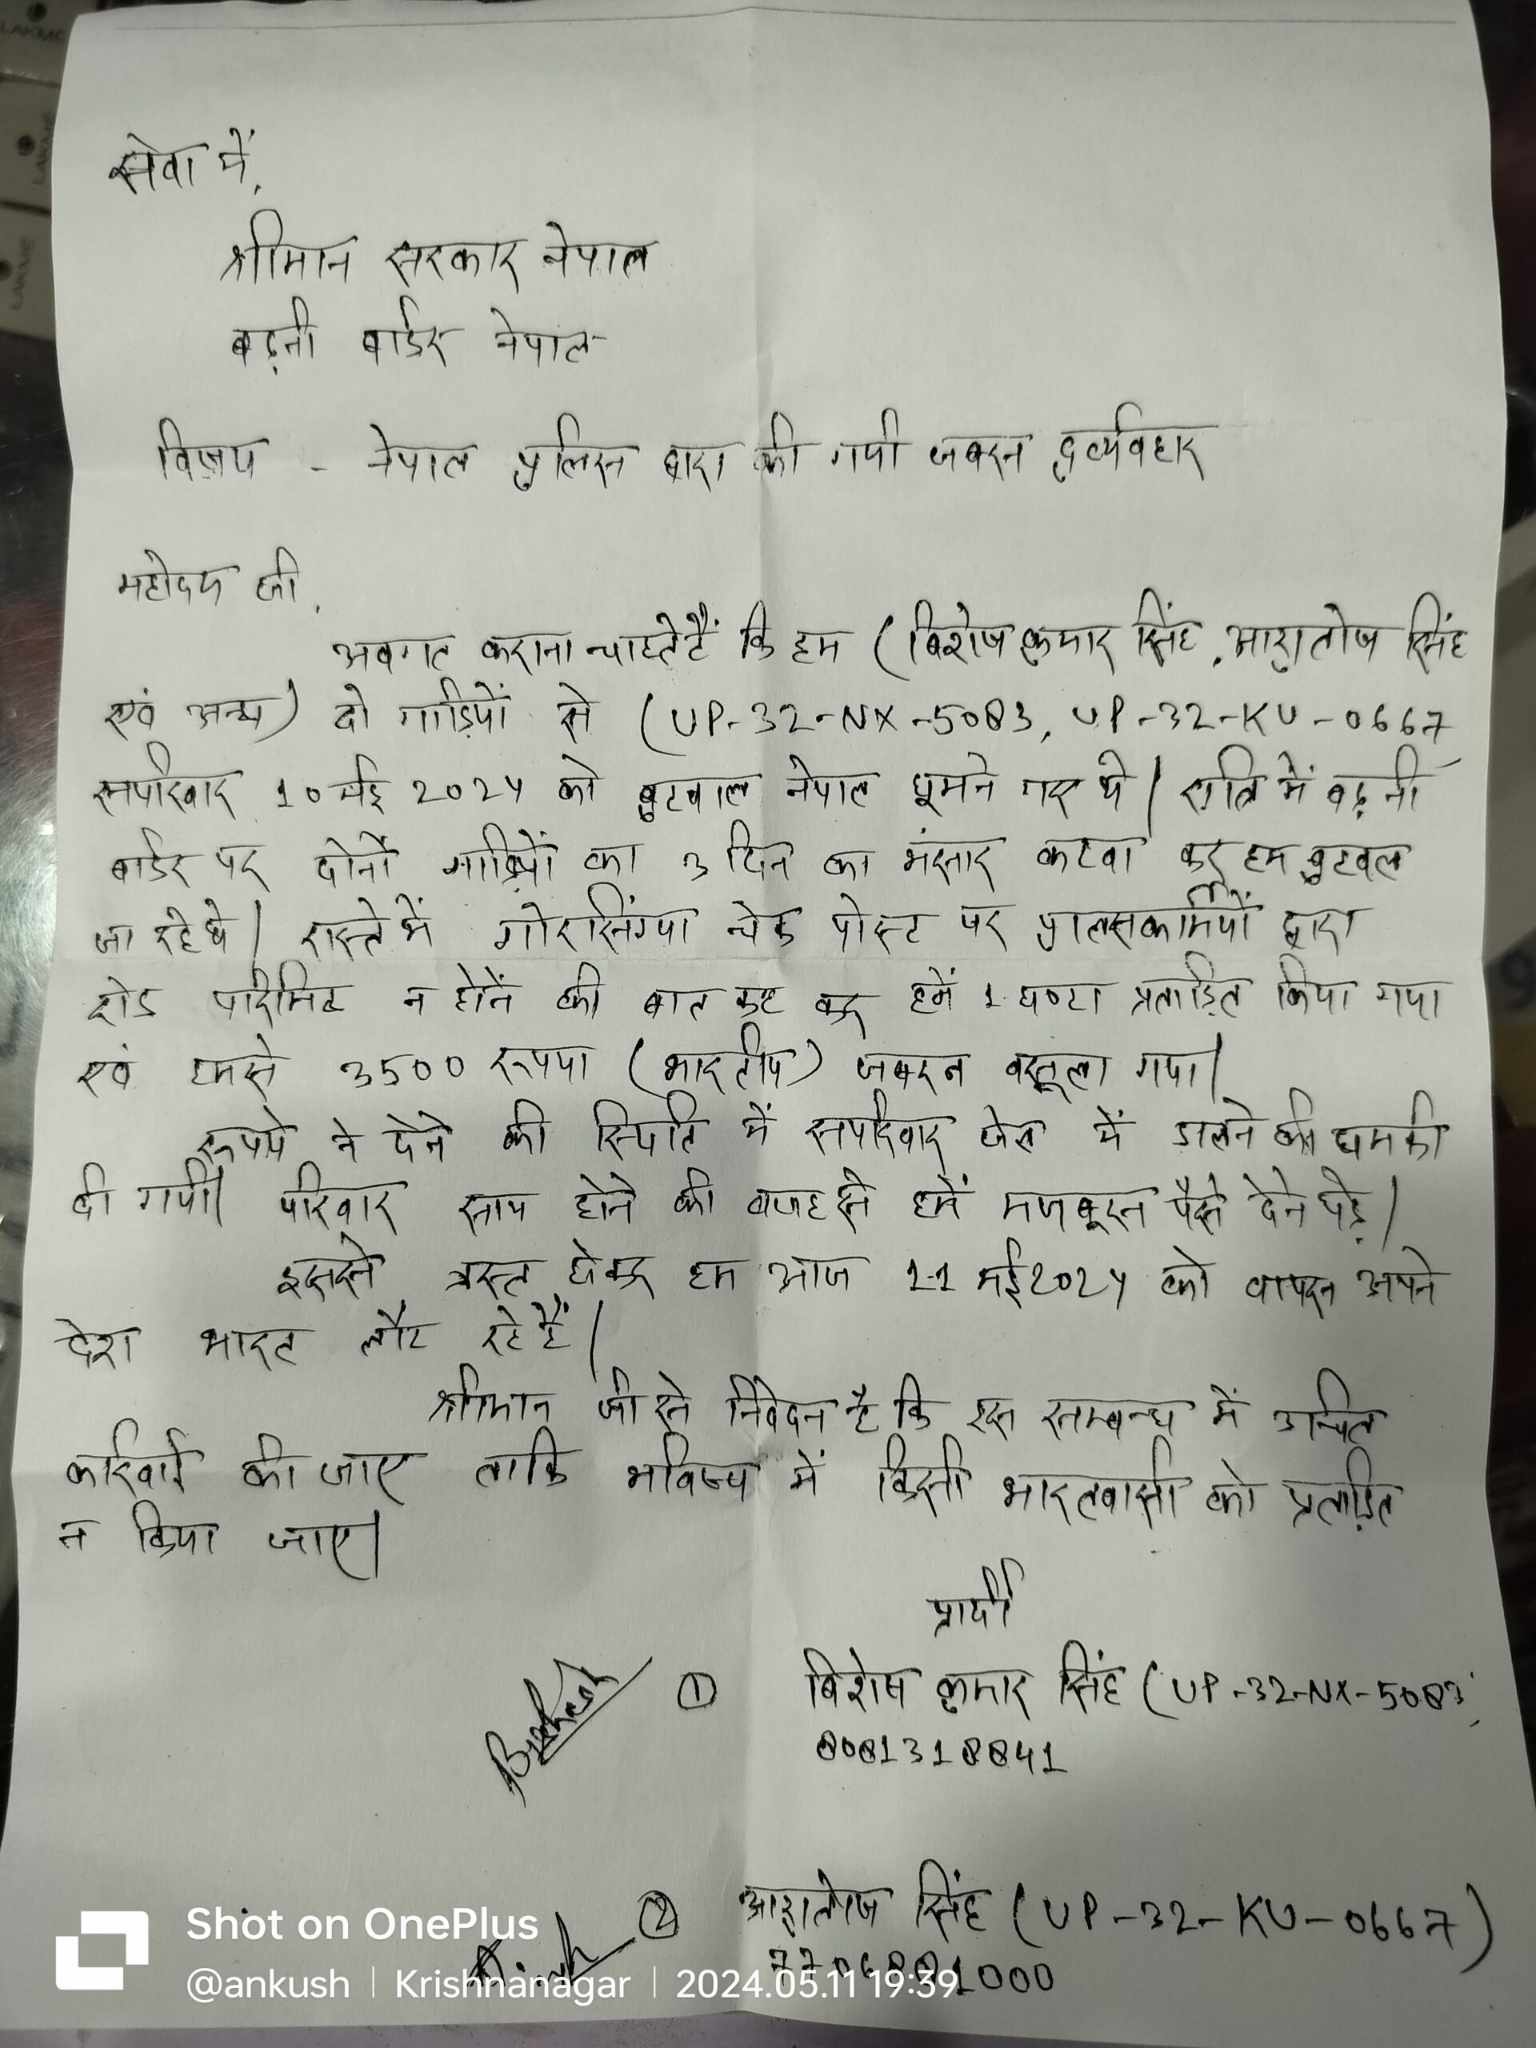 सेवा में,
श्रीमान सरकार नेपाल
बढ़नी बार्डर नेपाल
विषय - नेपाल पुलिस द्वारा की गयी जबरन दुर्व्यवहार
महोदय जी,
अवगत कराना चाहतेहैं कि हम (विशेष कुमार सिंह, आशुतोष सिंह
एवं अन्य) दो गाड़ियों से (UP-32-NX-5083, UP-32-KU-0667
सपरिवार 10 मई 2024 को बुटवाल नेपाल घूमने गए थे। रात्रि में बढ़नी
बार्डर पर दोनों गाड़ियों का 3 दिन का भंसार कटवा कर हम बुटवल
जा रहे थे। रास्ते में गोरसिंगया चेक पोस्ट पर पुलिसकर्मियों द्वारा
रोड परिमिट न होनें की बात कह कर हमें 1 घण्टा प्रताड़ित किया गया
एवं हमसे 3500 रूपया (भारतीय) जबरन वसूला गया।
रूपये ने देने की स्थिति में सपरिवार जेल में डालने की धमकी
दी गयी। परिवार साथ होने की वजह से हमें मजबूरन पैसे देने पड़े।
इससे त्रस्त होकर हम आज 11 मई 2024 को वापस अपने
देश भारत लौट रहे हैं।
श्रीमान जी से निवेदन है कि इस सम्बन्ध में उचित
कार्रवाई की जाए ताकि भविष्य में किसी भारतवासी को प्रताड़ित
न किया जाए।
प्रार्थी
① विशेष कुमार सिंह (UP-32-NX-5083)
8081318841
② आशुतोष सिंह (UP-32-KU-0667)
Shot on OnePlus
@ankush | Krishnanagar | 2024.05.11 19:39